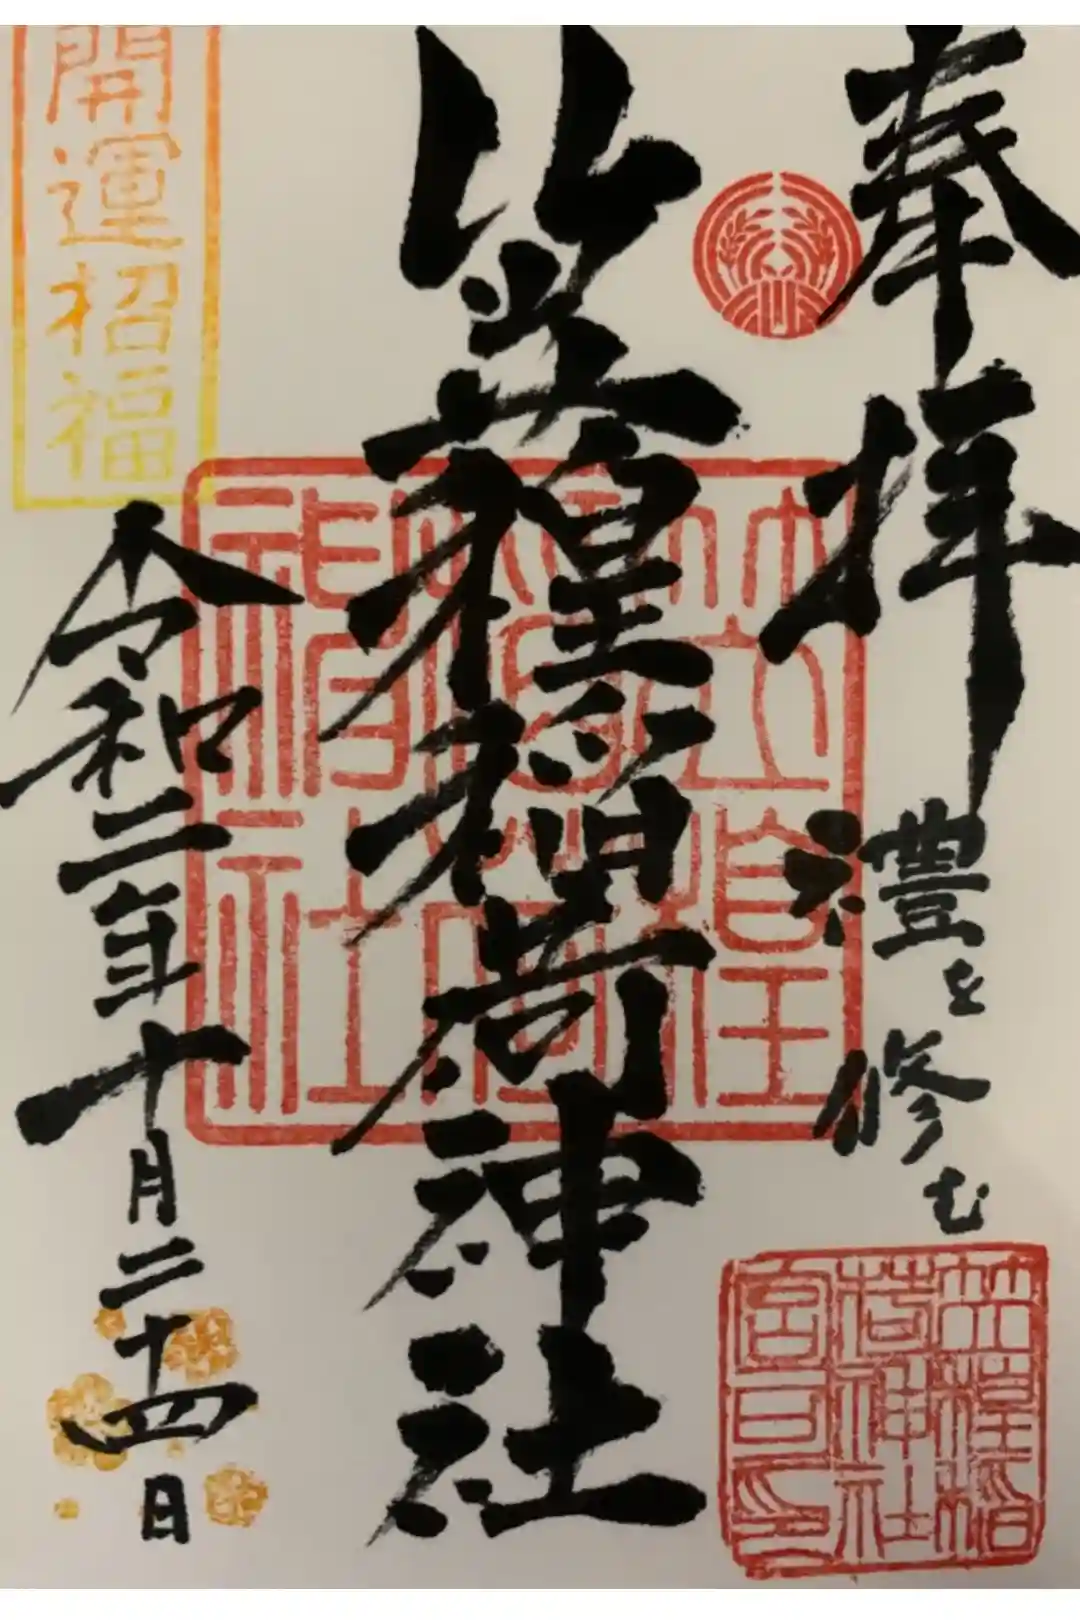 奉拝
禮を修む
笠䅣稲荷神社
令和二年十月二十四日
開運招福
笠䅣
稲荷
神社
笠䅣稲
荷神社
宮司印